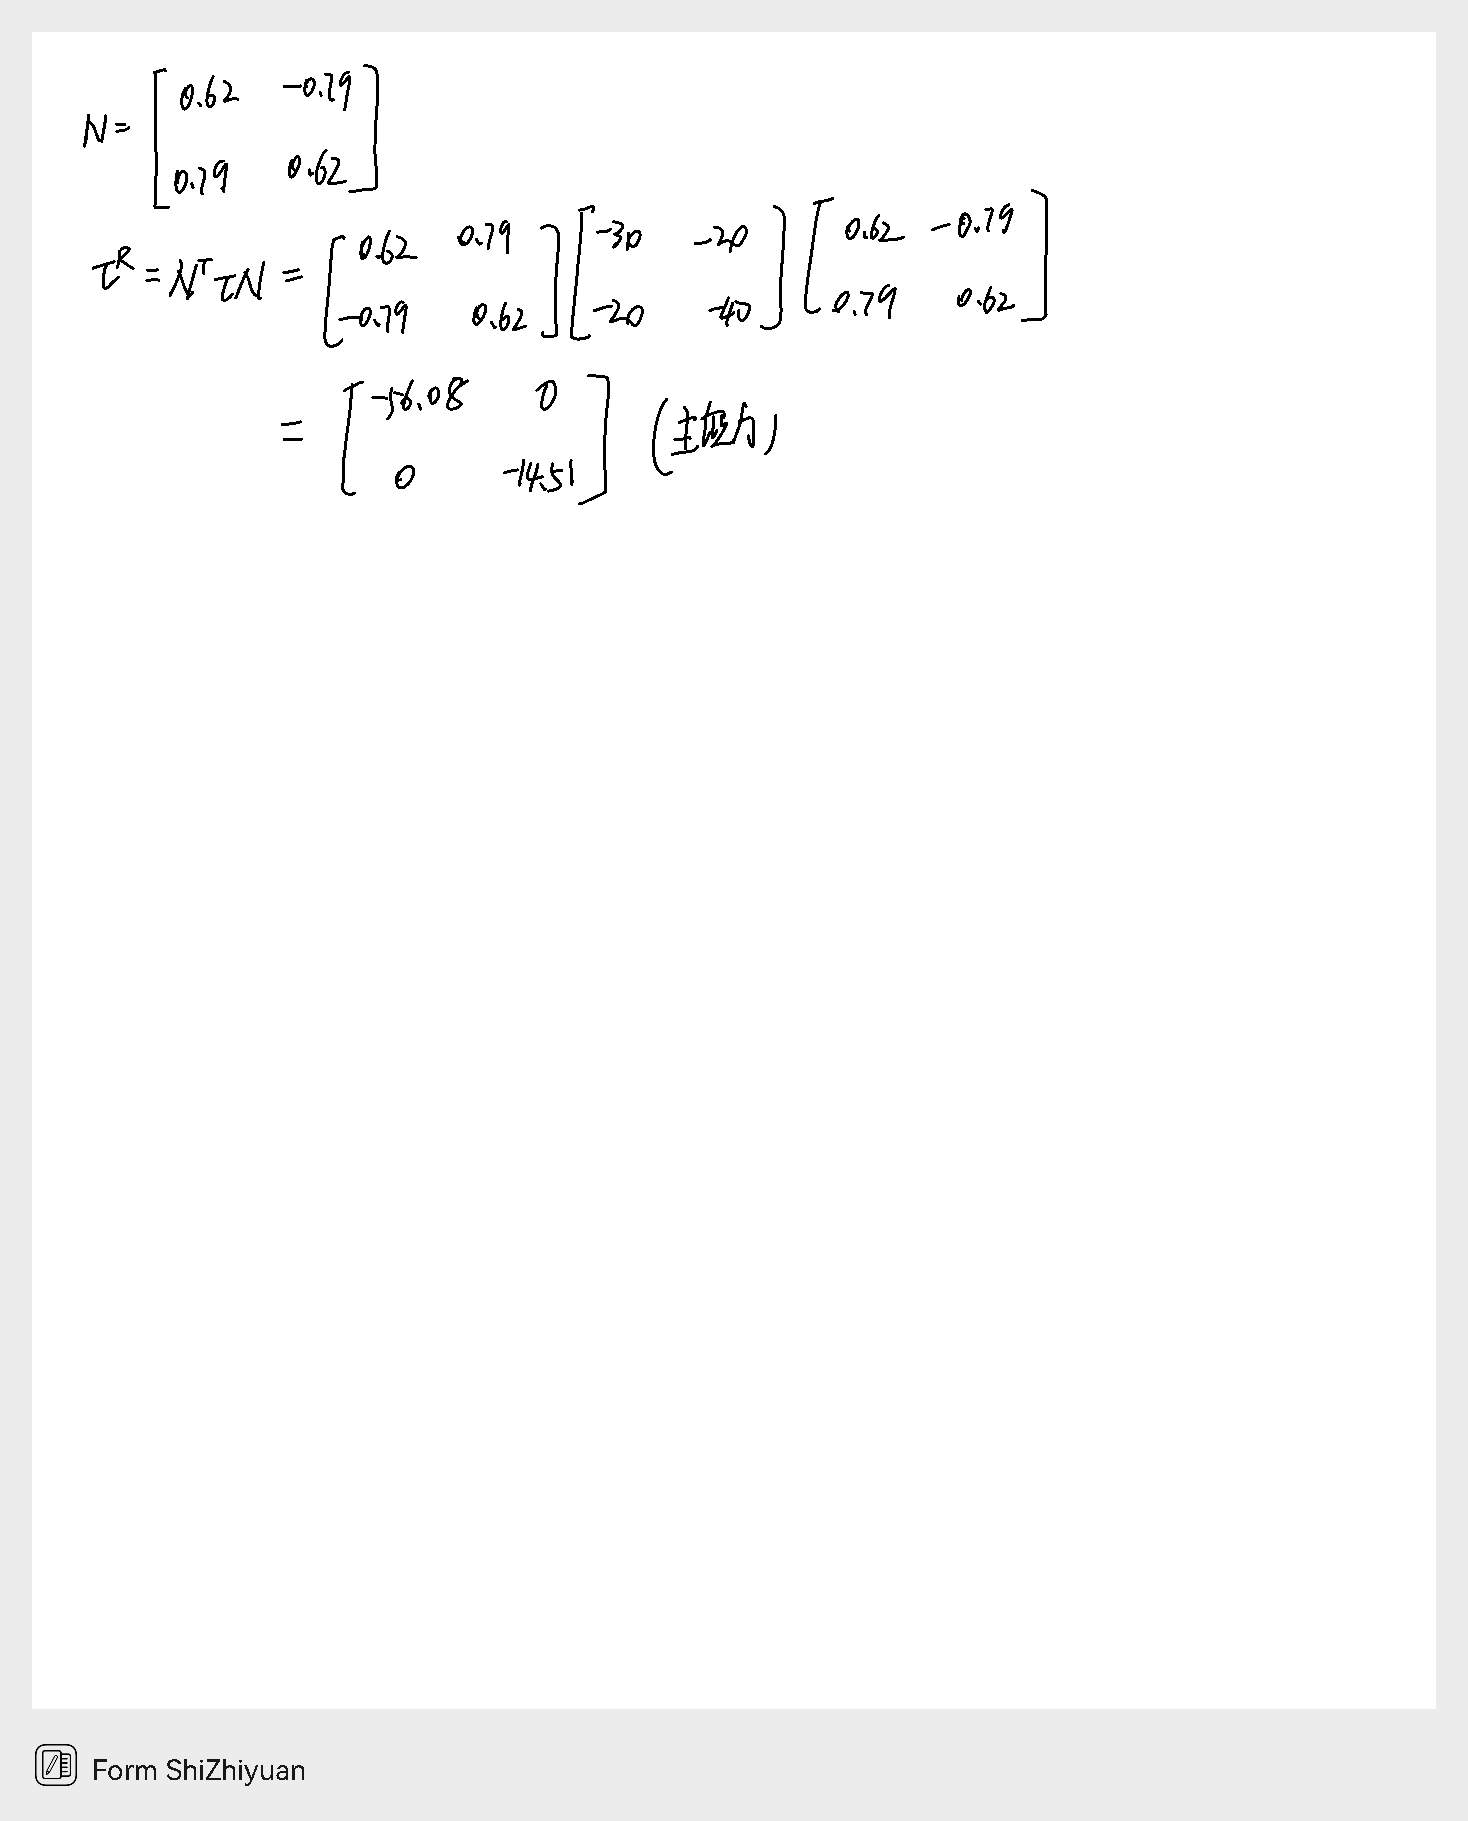 N = [0.62 -0.79
0.79 0.62]
τᴿ = Nᵀ τ N = [0.62 0.79
-0.79 0.62] [-30 -20
-20 -40] [0.62 -0.79
0.79 0.62]
= [-56.08 0
0 -14.51] (主应力)
Form ShiZhiyuan